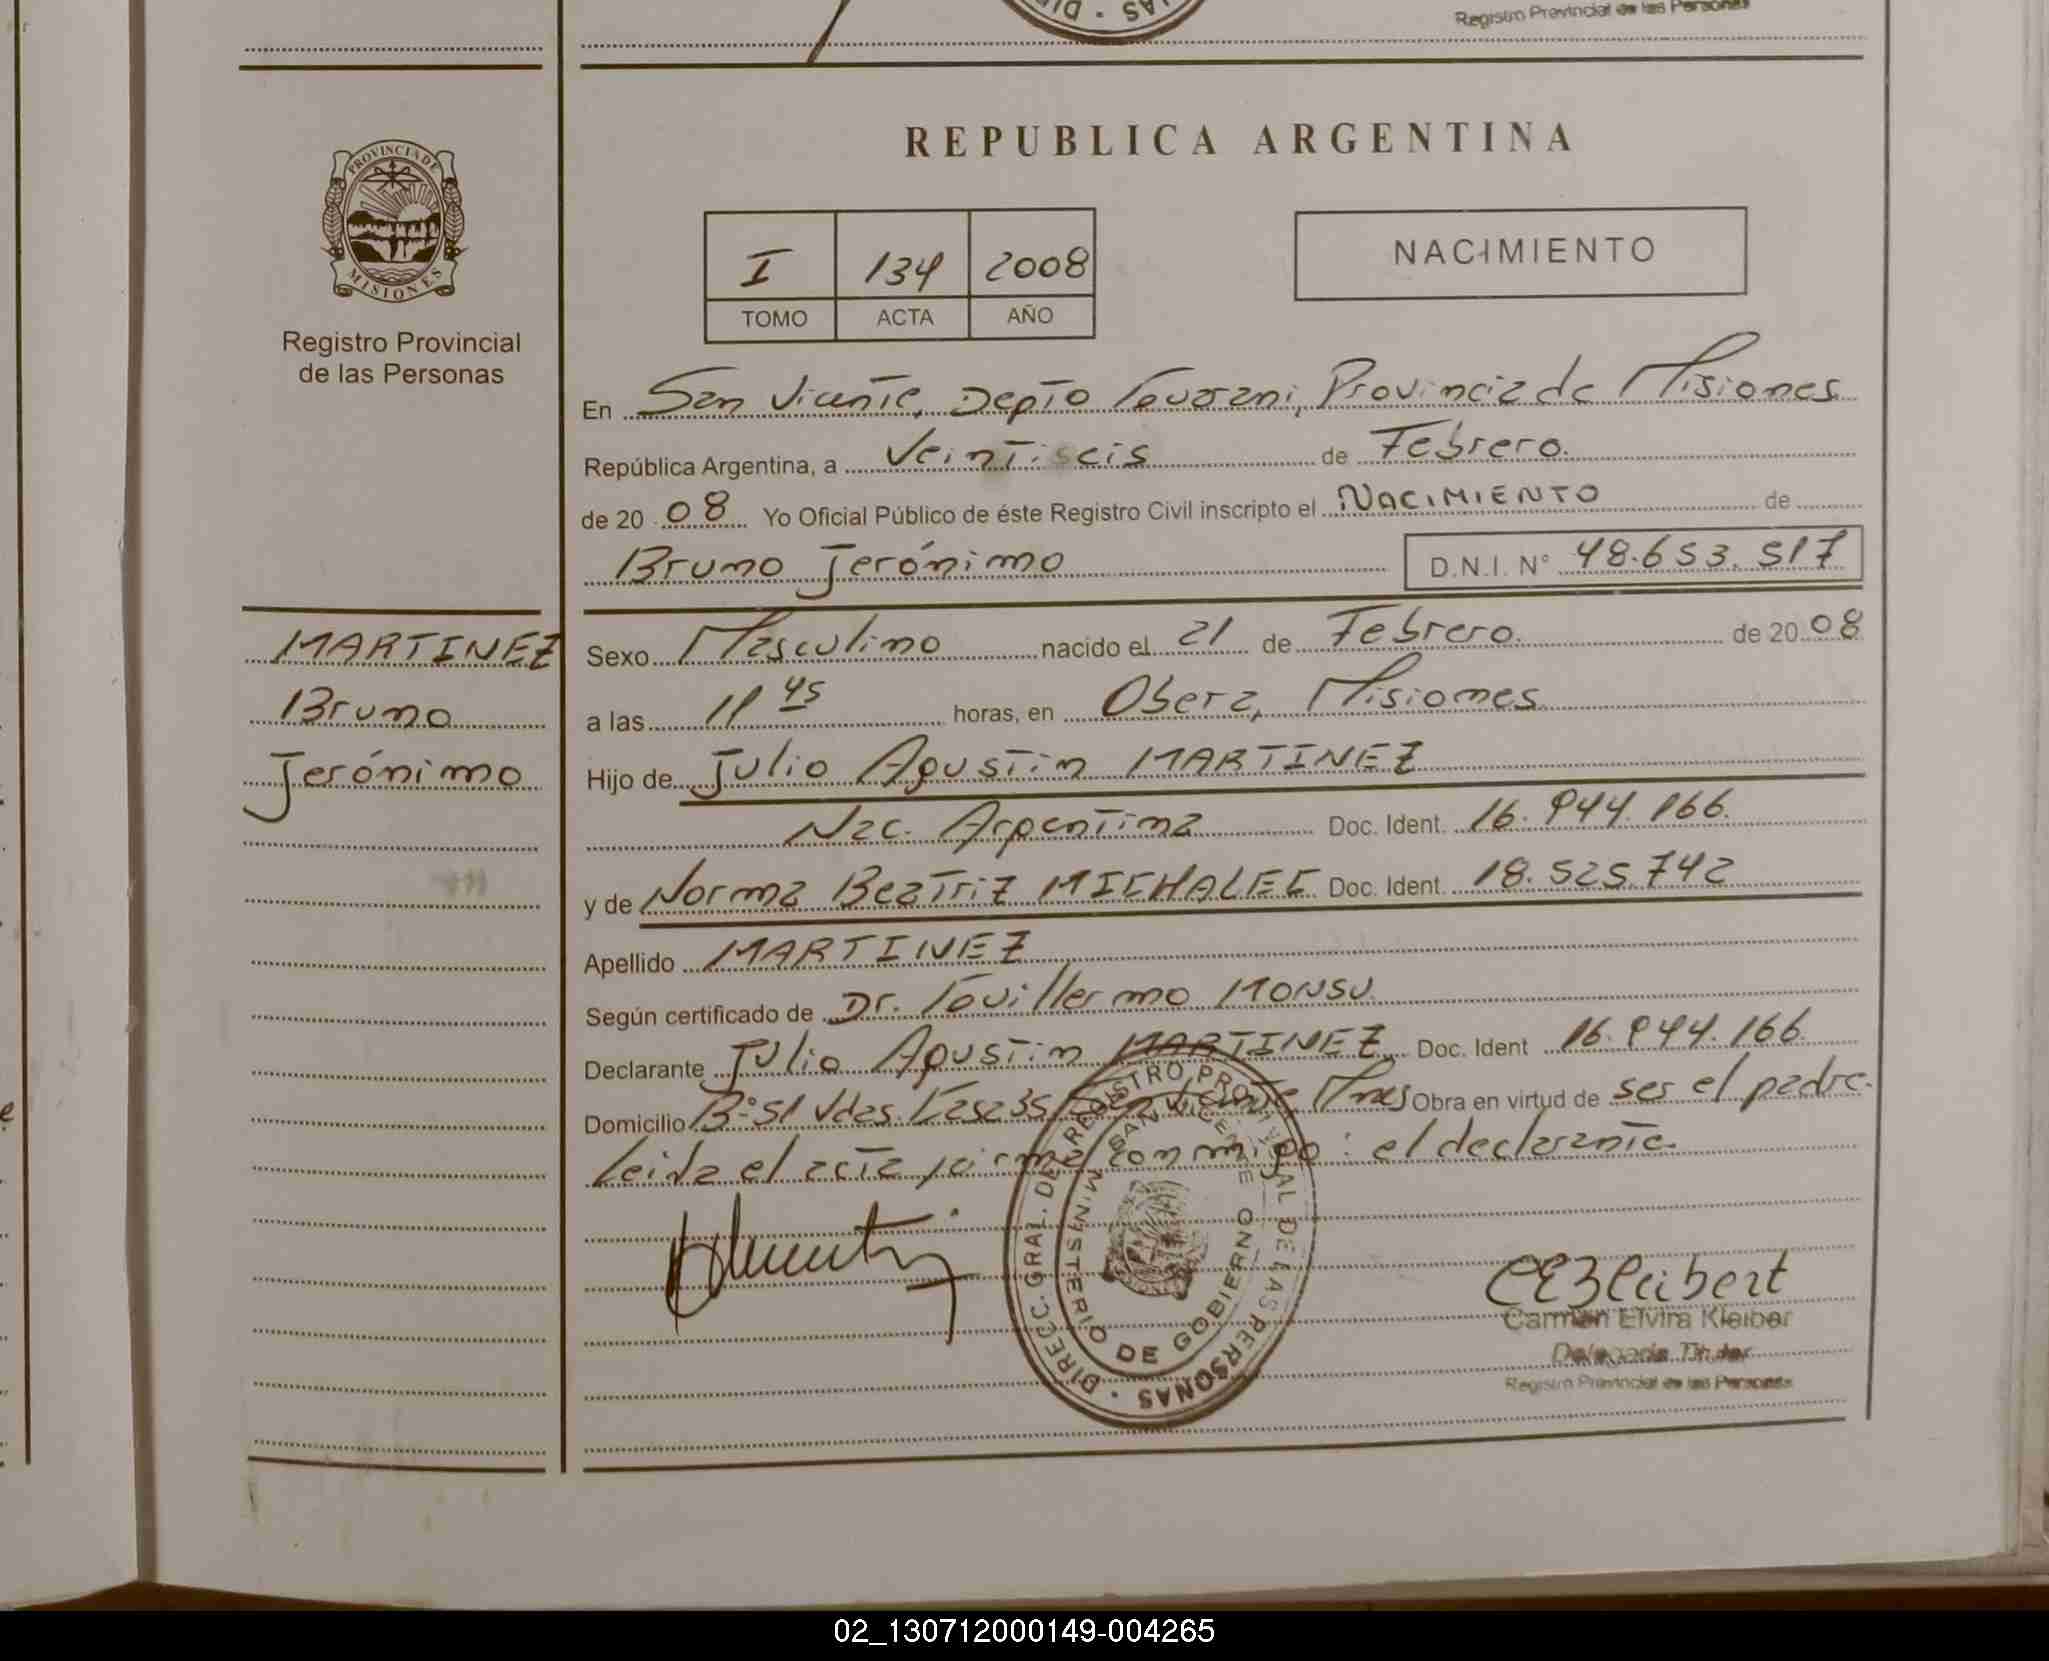 Registro Provincial de las Personas
REPUBLICA ARGENTINA
PROVINCIA DE
MISIONES
Registro Provincial
de las Personas
I 134 2008
TOMO ACTA AÑO
NACIMIENTO
En San Vicente, Depto Guarani, Provincia de Misiones
República Argentina, a Veintiseis de Febrero
de 20 08 Yo Oficial Público de éste Registro Civil inscripto el NACIMIENTO de
Bruno Jerónimo D.N.I. N° 48.653.517
MARTINEZ
Bruno
Jerónimo
Sexo Masculino nacido el 21 de Febrero de 20 08
a las 11 45 horas, en Obera, Misiones
Hijo de Julio Agustin MARTINEZ
Nac. Argentina Doc. Ident. 16.944.166
y de Norma Beatriz MICHALEC Doc. Ident. 18.525.742
Apellido MARTINEZ
Según certificado de Dr. Guillermo MONSU
Declarante Julio Agustin MARTINEZ Doc. Ident 16.944.166
Domicilio B° 51 Vdas. Casa 35 San Vicente Mnes Obra en virtud de ser el padre
Leida el acta firma conmigo: el declarante
DIRECC. GRAL. DE REGISTRO PROVINCIAL DE LAS PERSONAS
SAN VICENTE
MINISTERIO DE GOBIERNO
Carmen Elvira Kleiber
Delegada Titular
Registro Provincial de las Personas
02_130712000149-004265